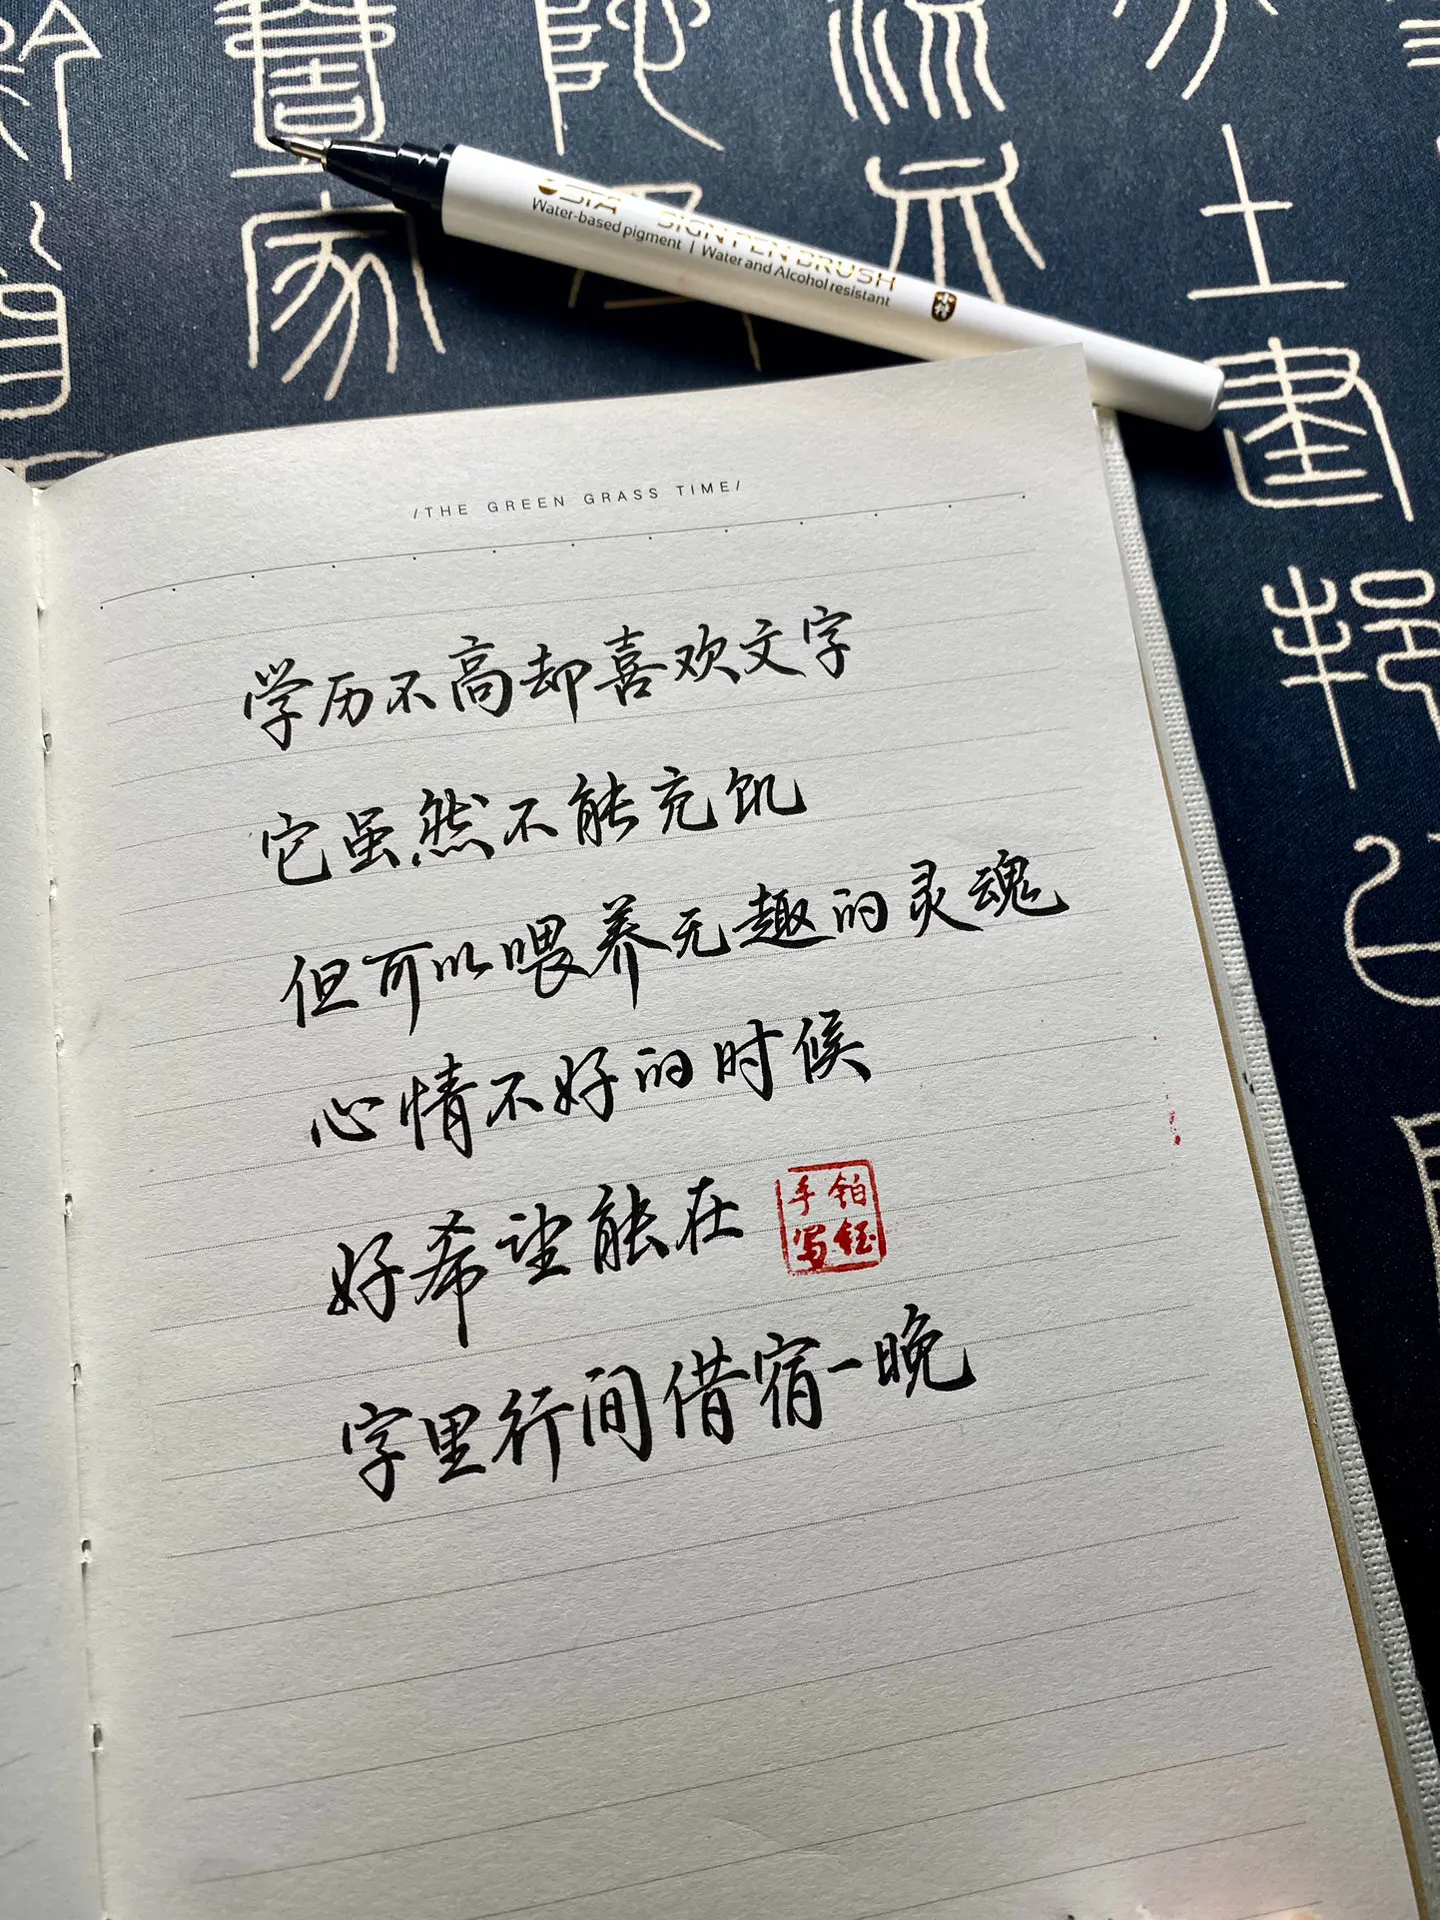 SIGN PEN BRUSH
Water-based pigment | Water and Alcohol resistant
/THE GREEN GRASS TIME/
学历不高却喜欢文字
它虽然不能充饥
但可以喂养无趣的灵魂
心情不好的时候
好希望能在
铂钰
手写
字里行间借宿一晚